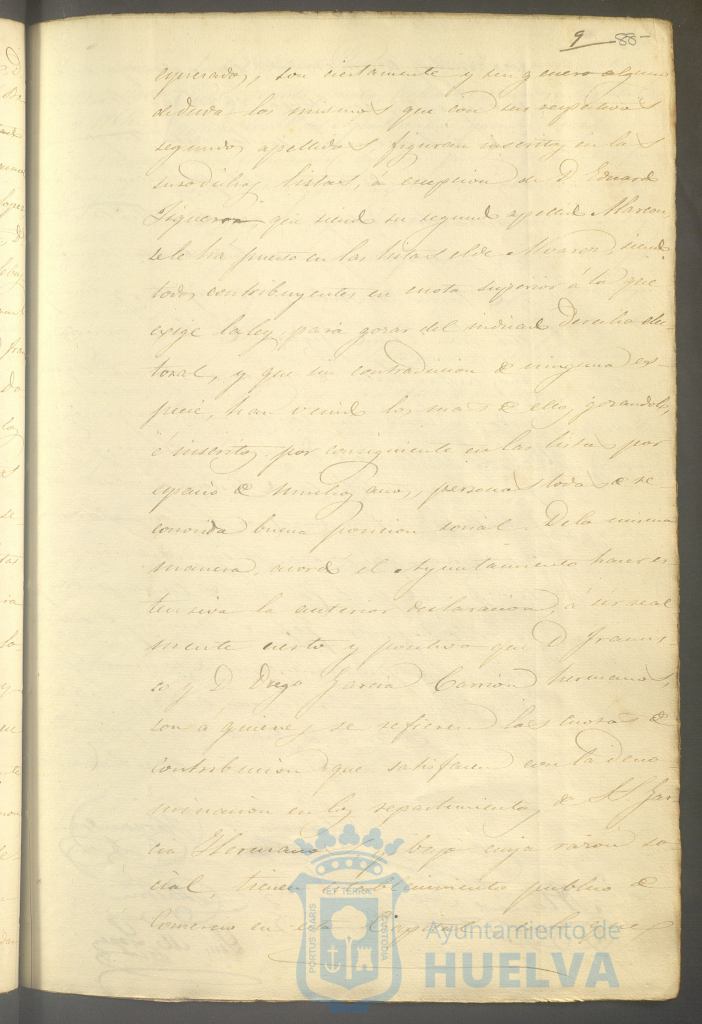 9 88
espresados, son ciertamente y sin genero alguno
de duda los mismos que con sus respectivos
segundos apellidos, figuran inscritos en las
susodichas listas, á escepcion de D. Eduard
Figueron, que siend su segund apellid Marcon,
se le há puesto en las listas el de Alvarez, siend
todos contribuyentes en cuota superior á la que
exige la ley para gozar del indicad derecho elec-
toral, y que sin contradicion de ninguna es-
pecie, han venid los mas de ellos, gozandolo,
é inscritos por consiguiente en las listas por
espacio de muchos años, personas todas de re-
conocida buena posicion social. De la misma
manera, acordó el Ayuntamiento hacer es-
tensiva la anterior declaracion, á ser real
mente cierto y positivo que D. Francis-
co y D. Diego Garcia Carrion hermanos,
son á quienes se refieren las cuotas de
contribucion que satisfacen con la deno
minacion en los repartimientos de S.S. Gar-
cia Hermanos y bajo cuya razon so-
cial, tienen establecimiento publico de
Comercio en esta Capital
PORTUS MARIS ET TERRÆ CUSTODIA
Ayuntamiento de
HUELVA